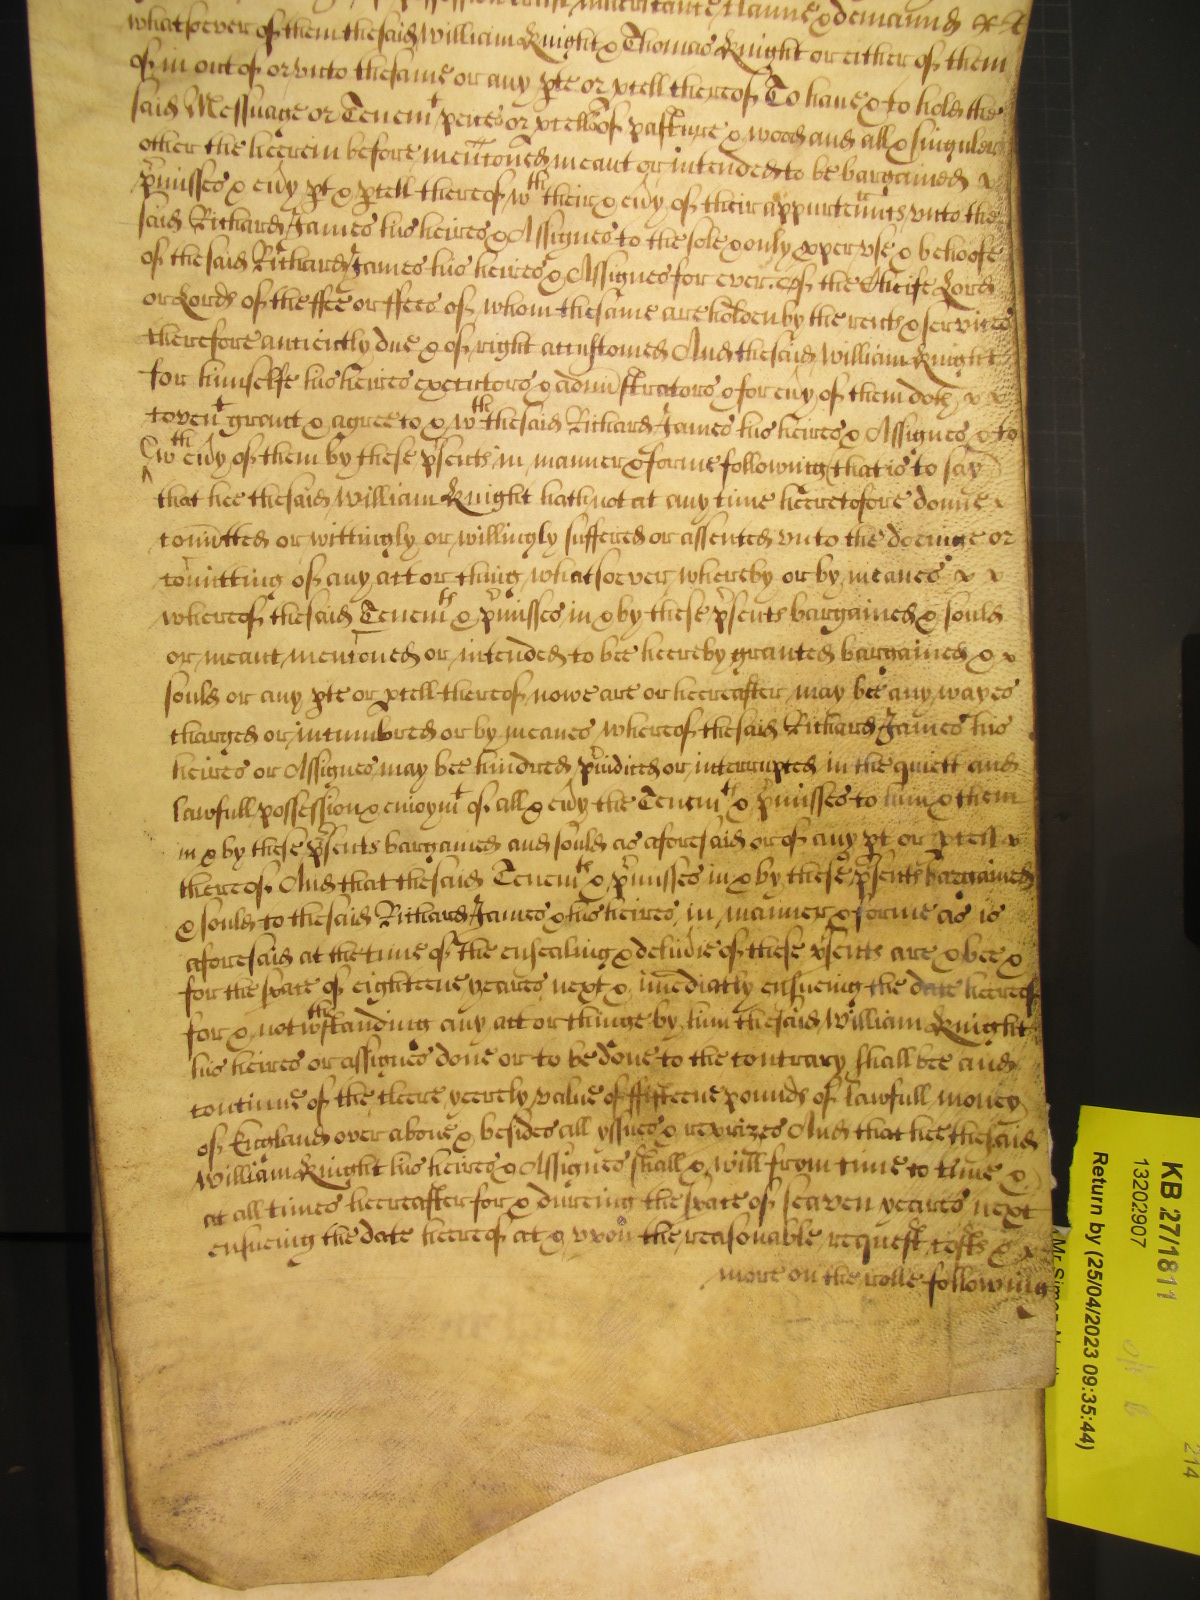 possession revise inheritance clayme & demaund &
whatsoever of them the said William Knight & Thomas Knight or either of them
of in out of or unto the same or any pte or pcell thereof To have & to hold the
said Messuage or Tenemt peces or pcells of pasture & wood and all & singuler
other the heerein before menconed meant or intended to be bargained x
pmisses & evy pt & pcell thereof wth their & evy of their appurtennts unto the
said Richard James his heires & Assignes to the sole & only pper use & behoofe
of the said Richard James his heires & Assignes for ever. of the Cheife Lord
or Lords of the ffee or ffees of whom the same are holden by the rents & services
therefore anciently due & of right accustomed And the said William Knight
for himselfe his heires executors & administrators & for evy of them doth x x
covent grant & agree to & wth the said Richard James his heires & Assignes & to
& wth evy of them by these psents in manner & forme following that is to say
that hee the said William Knight hath not at any time heeretofore donne x
comitted or wittingly or willingly suffered or assented unto the doeinge or
comitting of any act or thing whatsoever whereby or by meanes x x
whereof the said Tenemts & pmisses in & by these psents bargained & sould
or meant menconed or intended to bee heereby granted bargained & x
sould or any pte or pcell thereof nowe are or heereafter may bee any wayes
charged or incumbred or by meanes whereof the said Richard James his
heires or Assignes may bee hindred piudiced or interrupted in the quiett and
lawfull possession & enioymt of all & evy the Tenemt & pmisses to him & them
in & by these psents bargained and sould as aforesaid or of any pt or pcell x
thereof And that the said Tenemts & pmisses in & by these psents bargained
& sould to the said Richard James & his heires in manner & forme as is
aforesaid at the time of the ensealing & delivie of these psents are & bee &
for the space of eighteene yeares next & imediatly ensueing the date heereof
for & notwthstanding any act or thinge by him the said William Knight
his heires or assignes done or to be done to the contrary shall bee and
continue of the cleere yeerely value of ffifteene pounds of lawfull money
of England over above & besides all yssues & reprizes And that hee the said
William Knight his heires & Assignes shall & will from time to time &
at all times heereafter for & dureing the space of seaven yeares next
ensueing the date heereof at & upon the reasonable request costs & x
more on the rolle following
KB 27/1811
13202907
Return by (25/04/2023 09:35:44)
214